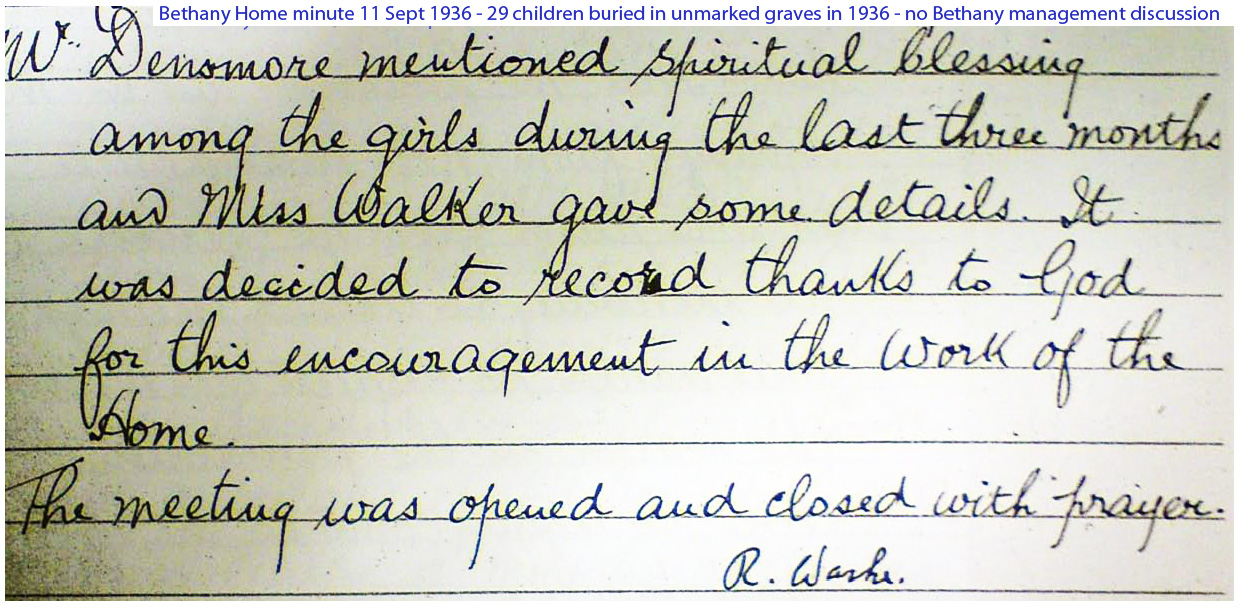 Bethany Home minute 11 Sept 1936 - 29 children buried in unmarked graves in 1936 - no Bethany management discussion
Mr. Densmore mentioned spiritual blessing
among the girls during the last three months
and Miss Walker gave some details. It
was decided to record thanks to God
for this encouragement in the work of the
Home.
The meeting was opened and closed with prayer.
R.